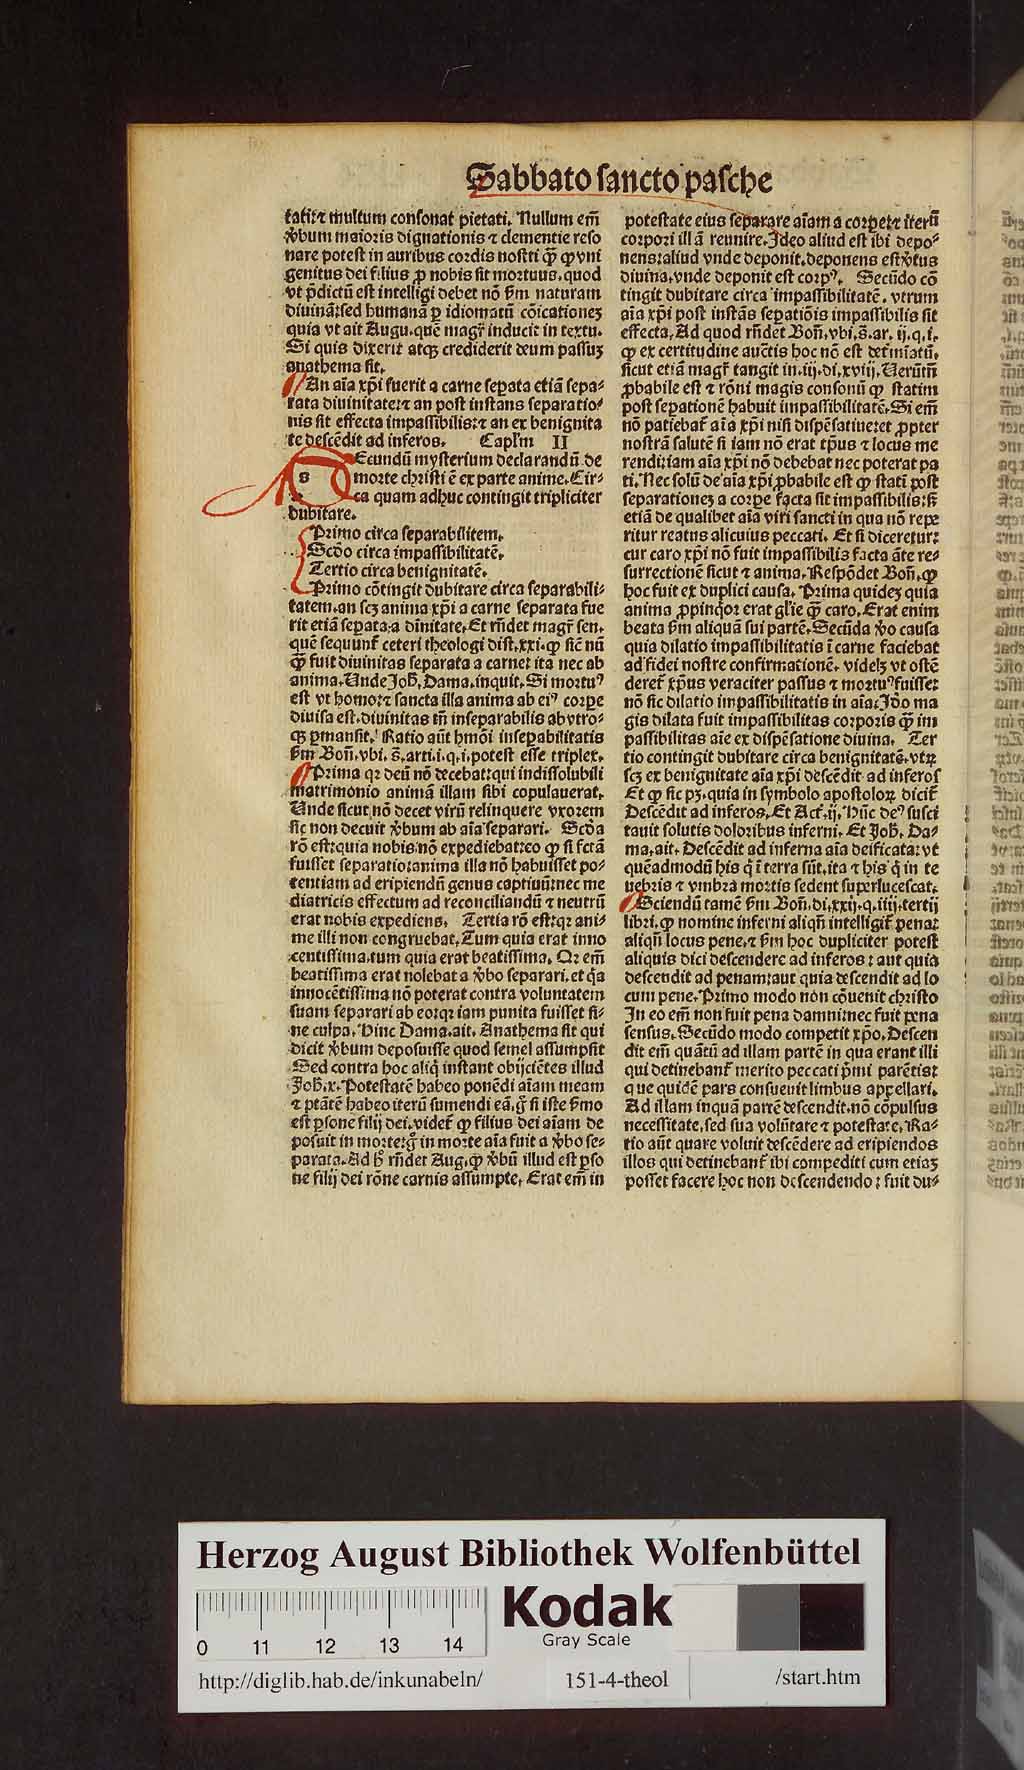 Sabbato sancto pasche
tati:⁊ multum consonat pietati. Nullum em̄
v̾bum maioris dignationis ⁊ clementie reso
nare potest in auribus cordis nostri q̄ꝫ ꝙ vni
genitus dei filius ꝓ nobis sit mortuus. quod
vt p̄dictū est intelligi debet nō s̄m naturam
diuinā: sed humanā ꝑ idiomatū cōicationeꝫ
quia vt ait Augu. quē magr̄ inducit in textu.
Si quis dixerit atqꝫ crediderit deum passuꝫ
anathema sit.
An aīa xp̄i fuerit a carne seꝑata etiā sepa⸗
rata diuinitate:⁊ an post instans separatio⸗
nis sit effecta impassibilis:⁊ an ex benignita
te descēdit ad inferos. Caplm̄ II
Ecundū mysterium declarandū de
s morte christi ē ex parte anime. Cir⸗
ca quam adhuc contingit tripliciter
dubitare.
Primo circa separabilitem.
Scd̄o circa impassibilitatē.
Tertio circa benignitatē.
Primo cōtingit dubitare circa separabili⸗
tatem. an scꝫ anima xp̄i a carne separata fue
rit etiā seꝑata a dīnitate. Et rn̄det magr̄ sen.
quē sequunt᷑ ceteri theologi dist. xxi. ꝙ sic̄ nū
q̄ꝫ fuit diuinitas separata a carne: ita nec ab
anima. Unde Joh̄. Dama. inquit. Si mortuꝰ
est vt homo:⁊ sancta illa anima ab eiꝰ corpe
diuisa est. diuinitas tn̄ inseparabilis ab vtro⸗
qꝫ ꝑmansit. Ratio aūt hmōi inseꝑabilitatis
s̄m Bon̄. vbi. s̄. arti. i. q. i. potest esse triplex.
Prima qꝛ deū nō decebat: qui indissolubili
matrimonio animā illam sibi copulauerat.
Unde sicut nō decet virū relinquere vxorem
sic non decuit v̾bum ab aīa separari. Scd̄a
rō est: quia nobis nō expediebat: eo ꝙ si fctā
fuisset separatio: anima illa nō habuisset po⸗
tentiam ad eripiendū genus captiuū: nec me
diatricis effectum ad reconciliandū ⁊ neutrū
erat nobis expediens. Tertia rō est: qꝛ ani⸗
me illi non congruebat. Tum quia erat inno
centissima. tum quia erat beatissima. Qꝛ em̄
beatissima erat nolebat a v̾bo separari. et q̄a
innocētissima nō poterat contra voluntatem
suam separari ab eo: qꝛ iam punita fuisset si⸗
ne culpa. Hinc Dama. ait. Anathema sit qui
dicit v̾bum deposuisse quod semel assumpsit
Sed contra hoc aliq̄ instant obijciētes illud
Joh̄. x. Potestatē habeo ponēdi aīam meam
⁊ ptātē habeo iterū sumendi eā. g̊ si iste s̄mo
est ꝑsone filij dei. videt᷑ ꝙ filius dei aīam de
posuit in morte: g̊ in morte aīa fuit a v̾bo se⸗
parata. Ad h̄ rn̄det Aug. ꝙ v̾bū illud est ꝑso
ne filij dei rōne carnis assumpte. Erat em̄ in
potestate eius separare aīam a corpe:⁊ iterū
corpori illā reunire. Ideo aliud est ibi depo⸗
nens: aliud vnde deponit. deponens est v̾tus
diuina. vnde deponit est corpꝰ. Secūdo cō
tingit dubitare circa impassibilitatē. vtrum
aīa xp̄i post instās seꝑatiōis impassibilis sit
effecta. Ad quod rn̄det Bon̄. vbi. s̄. ar. ij. q. i.
ꝙ ex certitudine auctīs hoc nō est det̾mīatū.
sicut etiā magr̄ tangit in. iij. di. xviij. Verūtn̄
ꝓbabile est ⁊ rōni magis consonū ꝙ statim
post seꝑationē habuit impassibilitatē. Si em̄
nō patiebat᷑ aīa xp̄i nisi dispēsatiue: et ꝓpter
nostrā salutē si iam nō erat tp̄us ⁊ locus me
rendi: iam aīa xp̄i nō debebat nec poterat pa
ti. Nec solū de aīa xp̄i ꝓbabile est ꝙ statī post
separationeꝫ a corpe facta sit impassibilis: sꝫ
etiā de qualibet aīa viri sancti in qua nō repe
ritur reatus alicuius peccati. Et si diceretur:
cur caro xp̄i nō fuit impassibilis facta āte re⸗
surrectionē sicut ⁊ anima. Respōdet Bon̄. ꝙ
hoc fuit ex duplici causa. Prima quideꝫ quia
anima ꝓpinqȯr erat gl̄ie q̄ꝫ caro. Erat enim
beata s̄m aliquā sui partē. Secūda v̾o causa
quia dilatio impassibilitatis ī carne faciebat
ad fidei nostre confirmationē. videlꝫ vt ostē
deret᷑ xp̄us veraciter passus ⁊ mortuꝰ fuisse:
nō sic dilatio impassibilitatis in aīa: Jdo ma
gis dilata fuit impassibilitas corporis q̄ꝫ im
passibilitas aīe ex dispēsatione diuina. Ter
tio contingit dubitare circa benignitatē. vtꝝ
scꝫ ex benignitate aīa xp̄i descēdit ad inferos
Et ꝙ sic pꝫ. quia in symbolo apostoloꝝ dicit᷑
Descēdit ad inferos. Et Act᷑. ij. Hūc deꝰ susci
tauit solutis doloribus inferni. Et Joh̄. Da⸗
ma. ait. Descēdit ad inferna aīa deificata: vt
quēadmodū his q̄ ī terra sūt. ita ⁊ his q̄ in te
nebris ⁊ vmbra mortis sedent superlucescat.
Sciendū tamē s̄m Bon̄. di. xxij. q. iiij. tertij
libri. ꝙ nomine inferni aliqn̄ intelligit᷑ pena:
aliqn̄ locus pene. ⁊ s̄m hoc dupliciter potest
aliquis dici descendere ad inferos: aut quia
descendit ad penam: aut quia descendit ad lo
cum pene. Primo modo non cōuenit christo
In eo em̄ non fuit pena damni: nec fuit pena
sensus. Secūdo modo competit xp̄o. Descen
dit em̄ quātū ad illam partē in qua erant illi
qui detinebant᷑ merito peccati pr̄mi parētis:
que quidē pars consueuit limbus appellari.
Ad illam inquā partē descendit. nō cōpulsus
necessitate. sed sua volūtate ⁊ potestate. Ra⸗
tio aūt quare voluit descēdere ad eripiendos
illos qui detinebant᷑ ibi compediti cum etiaꝫ
posset facere hoc non descendendo: fuit du⸗
Herzog August Bibliothek Wolfenbüttel
Kodak
Gray Scale
0 11 12 13 14
http://diglib.hab.de/inkunabeln/ 151-4-theol /start.htm